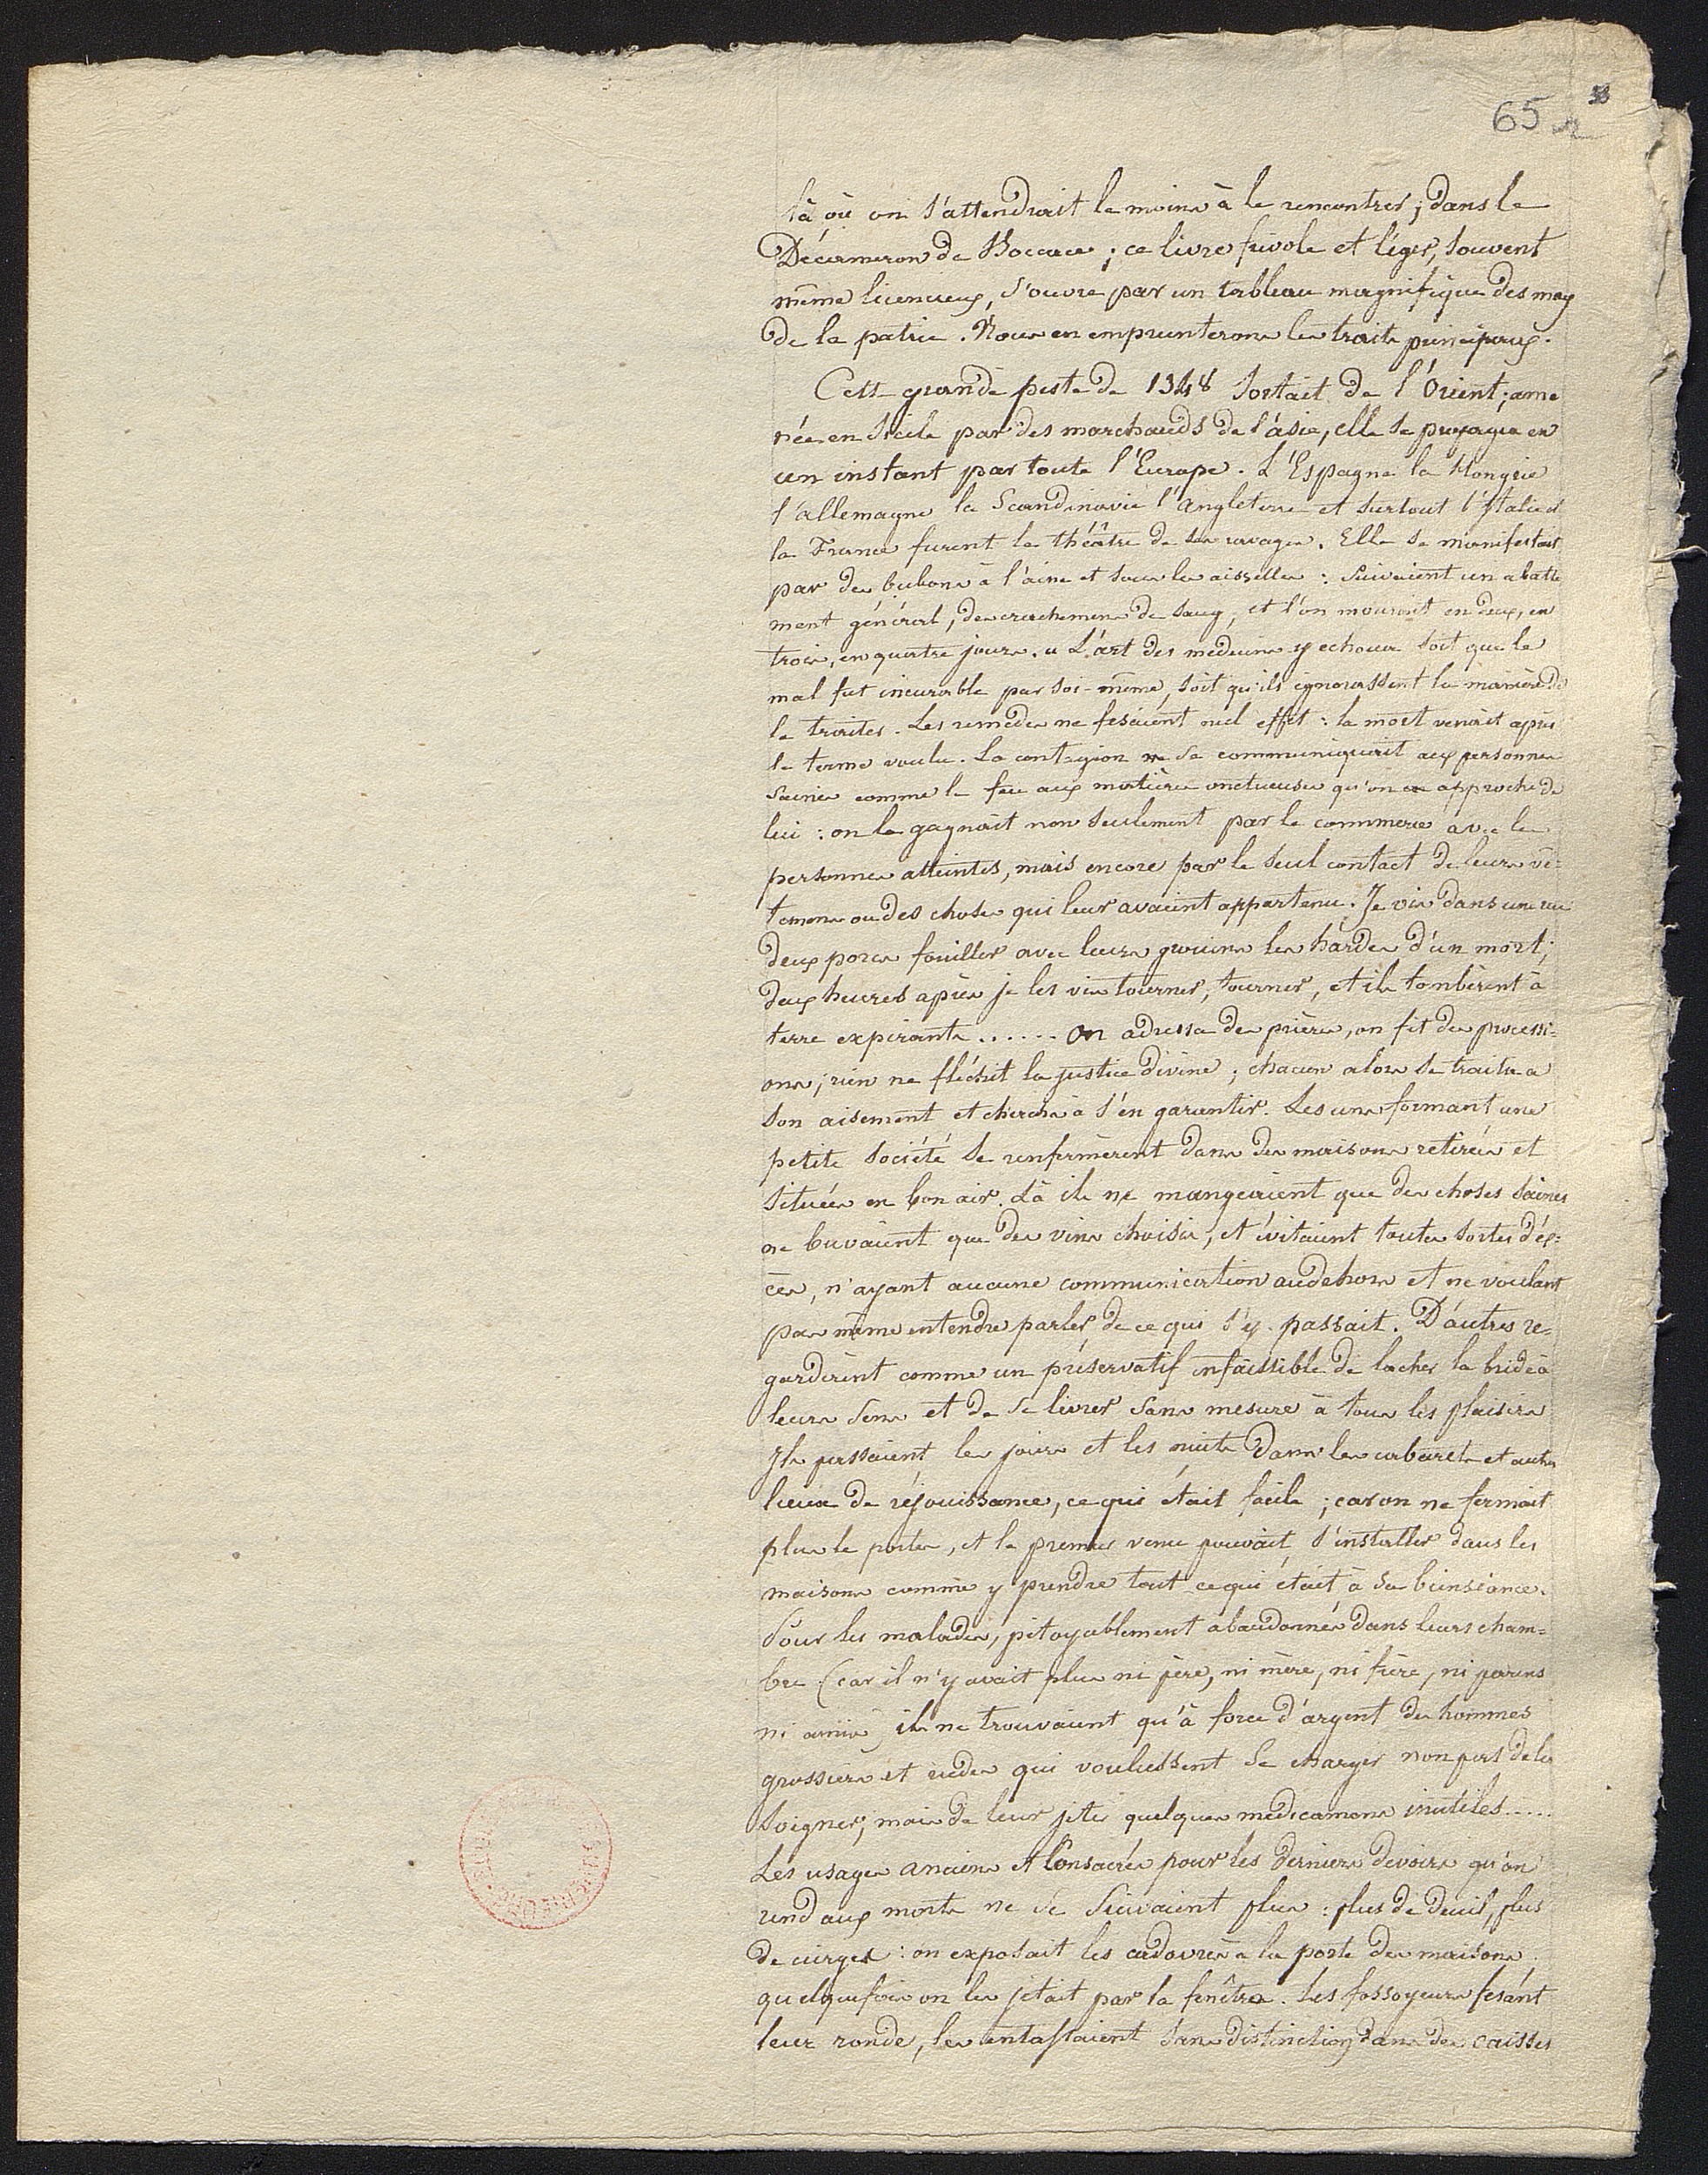 65
là où on s'attendrait le moins à le rencontrer ; dans le
Décameron de Bocace ; ce livre frivole et léger, souvent
même licencieux, s'ouvre par un tableau magnifique des maux
de la patrie. Nous en emprunterons les traits principaux.
Cette grande peste de 1348 sortait de l'Orient ; ame
née en Sicile par des marchands de l'asie, elle se propagea en
un instant par toute l'Europe. L'Espagne la Hongrie
l'allemagne la Scandinavie l'angleterre et surtout l'Italie et
la France furent le théâtre de ses ravages. Elle se manifestait
par des bubons à l'aine et sous les aisselles : suivaient un abatte
ment général, des crachemens de sang, et l'on mourait en deux, en
trois, en quatre jours. « L'art des medecins y echoua soit que le
mal fut incurable par soi-même, soit qu'ils ignorassent la manière de
le traiter. Les remèdes ne fesaient nul effet : la mort venait après
le terme voulu. La contagion se communiquait aux personnes
saines comme le feu aux matières onctueuses qu'on approche de
lui : on la gagnait non seulement par le commerce avec les
personnes atteintes, mais encore par le seul contact de leurs vê=
temens ou des choses qui leur avaient appartenu. Je vis dans une rue
deux porcs fouiller avec leurs grouins les hardes d'un mort ;
deux heures après je les vis tourner, tourner, et ils tombèrent à
terre expirants ...... On adressa des prières, on fit des processi=
ons ; rien ne fléchit la justice divine ; chacun alors se traita a
son aisement et chercha à s'en garantir. Les uns formant une
petite société se renfermèrent dans des maisons retirées et
situées en bon air. Là ils ne mangeaient que des choses saines
ne buvaient que des vins choisis, et évitaient toutes sortes d'ex=
cès, n'ayant aucune communication audehors et ne voulant
pas même entendre parler de ce qui s'y passait. D'autres re=
gardèrent comme un préservatif infaissible de lacher la bride à
leurs sens et de se livrer sans mesure à tous les plaisirs
Ils passaient les jours et les nuits dans les cabarets et autres
lieux de réjouissance, ce qui était facile ; car on ne fermait
plus le portes, et le premier venu pouvait s'installer dans les
maisons comme y prendre tout ce qui était à sa bienséance.
Pour les malades, pitoyablement abandonnés dans leurs cham=
bre (car il n'y avait plus ni père, ni mère, ni frère, ni parens
ni amis) ils ne trouvaient qu'à force d'argent des hommes
grossiers et rudes qui voulussent se charger non pas de les
soigner, mais de leur jeter quelques medicamens inutiles .....
Les usages anciens et consacrés pour les derniers devoirs qu'on
rend aux morts ne se suivaient plus : plus de deuil, plus
de cierges : on exposait les cadavres à la porte des maisons
quelquefois on les jetait par la fenêtre. Les fossoyeurs fesant
leur ronde, les entassaient sans distinction dans des caisses